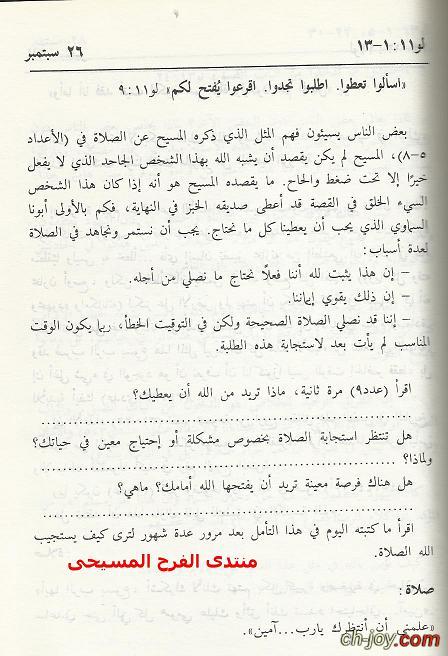 لو١١:١-١٣ ٢٦ سبتمبر
«اسألوا تعطوا. اطلبوا تجدوا. اقرعوا يُفتح لكم» لو١١:٩
بعض الناس يسيئون فهم المثل الذي ذكره المسيح عن الصلاة في (الأعداد
٥-٨)، المسيح لم يكن يقصد أن يشبه الله بهذا الشخص الجاحد الذي لا يفعل
خيرًا إلا تحت ضغط والحاح. ما يقصده المسيح هو أنه إذا كان هذا الشخص
السيء الخلق في القصة قد أعطى صديقه الخبز في النهاية، فكم بالأولى أبونا
السماوي الذي يحب أن يعطينا كل ما نحتاج. يجب أن نستمر ونجاهد في الصلاة
لعدة أسباب:
– إن هذا يثبت لله أننا فعلاً نحتاج ما نصلي من أجله.
– إن ذلك يقوي إيماننا.
– إننا قد نصلي الصلاة الصحيحة ولكن في التوقيت الخطأ، ربما يكون الوقت
المناسب لم يأت بعد لاستجابة هذه الطلبة.
اقرأ (عدد٩) مرة ثانية، ماذا تريد من الله أن يعطيك؟
هل تنتظر استجابة الصلاة بخصوص مشكلة أو إحتياج معين في حياتك؟
ولماذا؟
هل هناك فرصة معينة تريد أن يفتحها الله أمامك؟ ماهي؟
اقرأ ما كتبته اليوم في هذا التأمل بعد مرور عدة شهور لترى كيف يستجيب
الله الصلاة.
منتدى الفرح المسيحى
صلاة:
«علمني أن أنتظرك يارب...آمين».
ch-joy.com